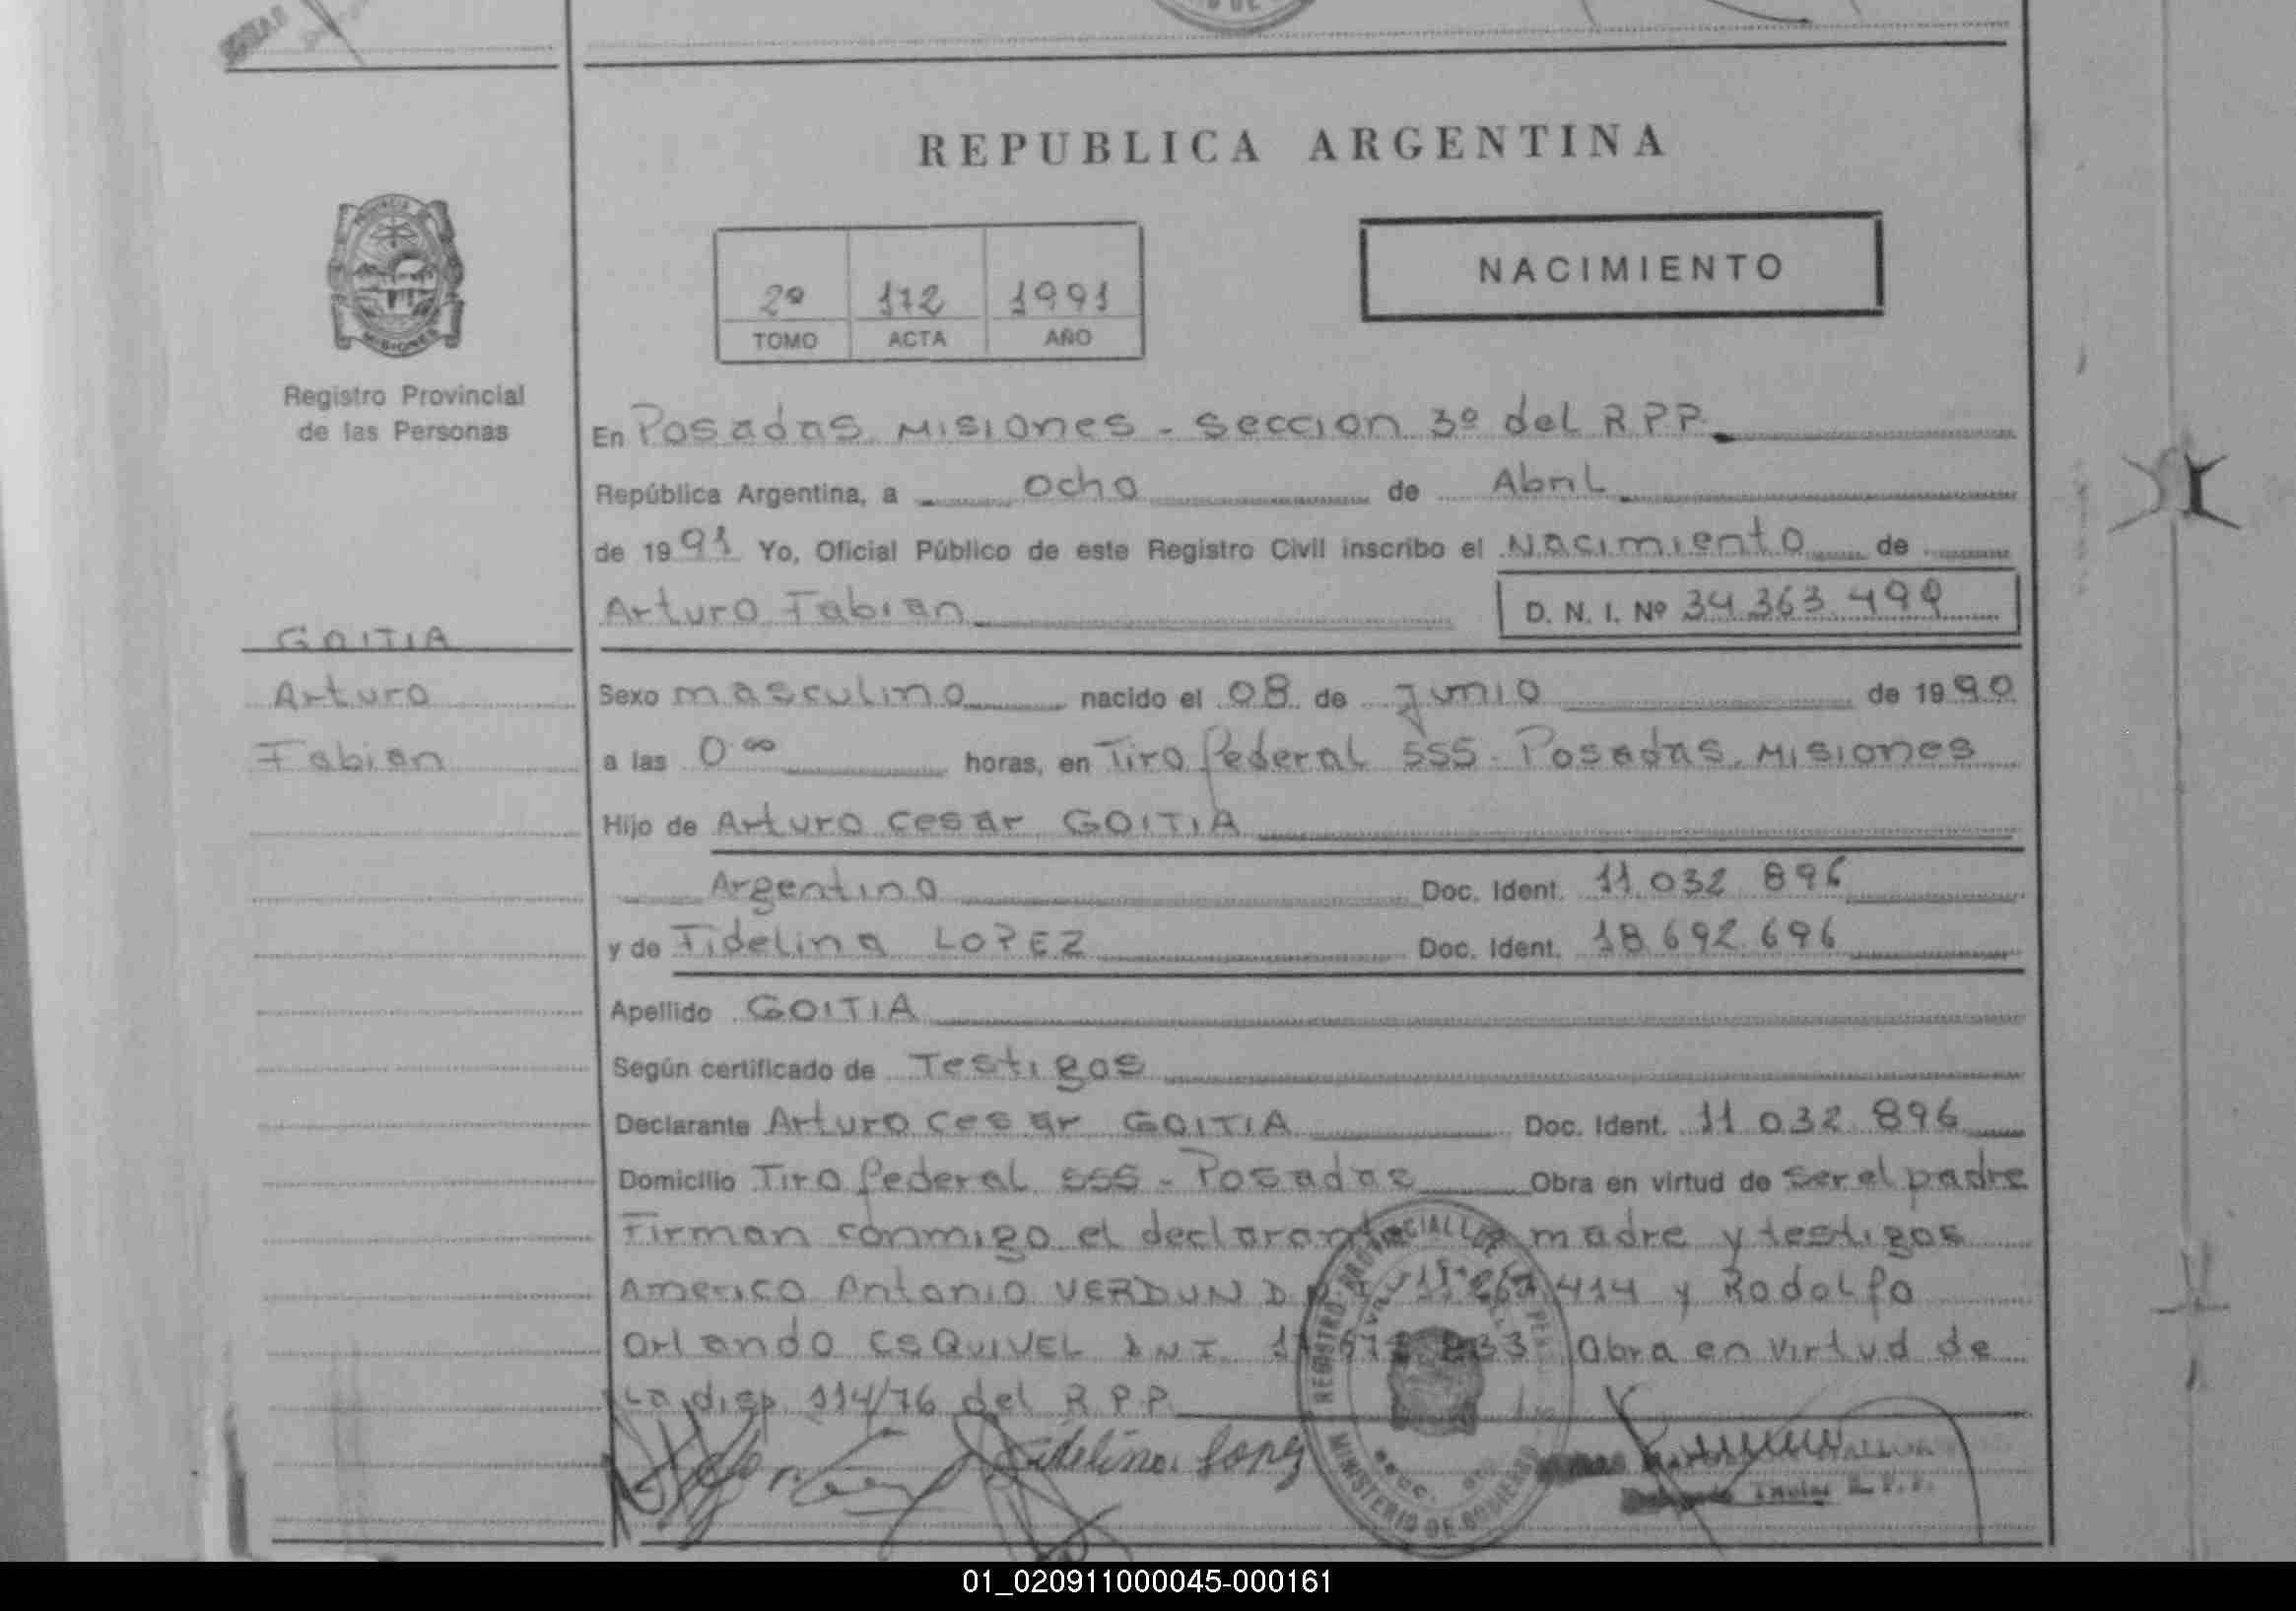 REPUBLICA ARGENTINA
NACIMIENTO
2º 172 1991
TOMO ACTA AÑO
PROVINCIA DE
MISIONES
Registro Provincial
de las Personas
En Posadas Misiones - Seccion 3º del R P P.
República Argentina, a ocho de Abril
de 1991 Yo, Oficial Público de este Registro Civil inscribo el Nacimiento de
Arturo Fabian D. N. I. Nº 34.363.499
GOITIA
Arturo
Fabian
Sexo masculino nacido el 08 de Junio de 1990
a las 0 ºº horas, en Tiro federal 555 - Posadas, Misiones
Hijo de Arturo Cesar GOITIA
Argentino Doc. Ident. 11.032 896
y de Fidelina LOPEZ Doc. Ident. 18.692.696
Apellido GOITIA
Según certificado de Testigos
Declarante Arturo Cesar GOITIA Doc. Ident. 11 032 896
Domicilio Tiro federal 555 - Posadas Obra en virtud de ser el padre
Firman conmigo el declarante madre y testigos
Americo Antonio VERDUN D 414 y Rodolfo
Orlando ESQUIVEL DNI Obra en virtud de
La disp. 114/76 del R P P
Fidelina Lopez
REGISTRO PROVINCIAL DE
MINISTERIO DE GOBIERNO
R. P. P.
01_020911000045-000161